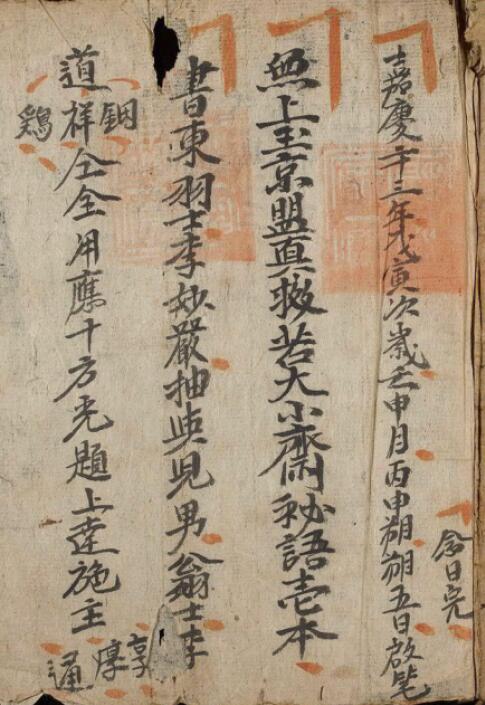 嘉慶二十三年戊寅次歲壬申月丙申朔朔五日啟筆
念日完
無上玉京盟真拔苦大小齋秘語壱本
書東羽士李妙嚴抽與兒男翁士李
道祥仝仝用應十方光題上達施主
鷄
鈿
享
淳
通